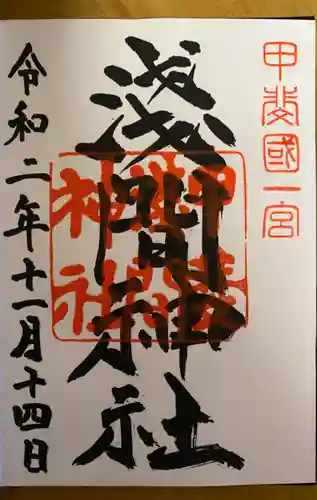 甲斐國一宮
淺間神社
令和二年十一月十四日